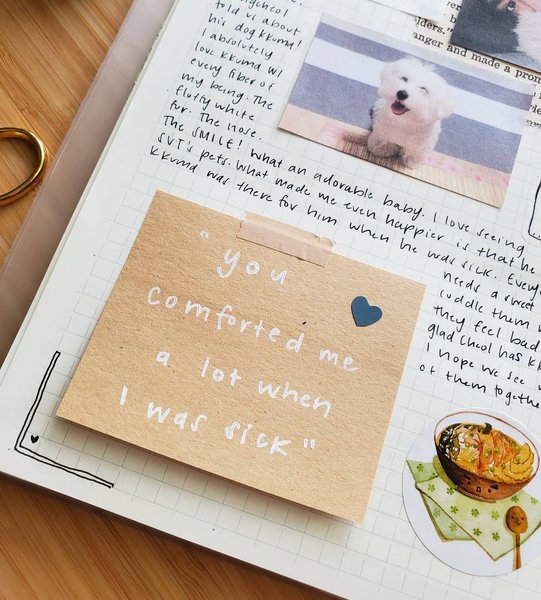 told us about
his dog kkuma!
I absolutely
love kkuma w/
every fiber of
my being. The
fluffy white
fur. The nose.
The SMILE! What an adorable baby. I love seeing
SVT's pets. What made me even happier is that he
kkuma was there for him when he was sick. Every
needs a sweet
cuddle them w
they feel bad
glad cheol has kk
I hope we see
of them togethe
"you
comforted me
a lot when
I was sick"
ders."
anger and made a prom